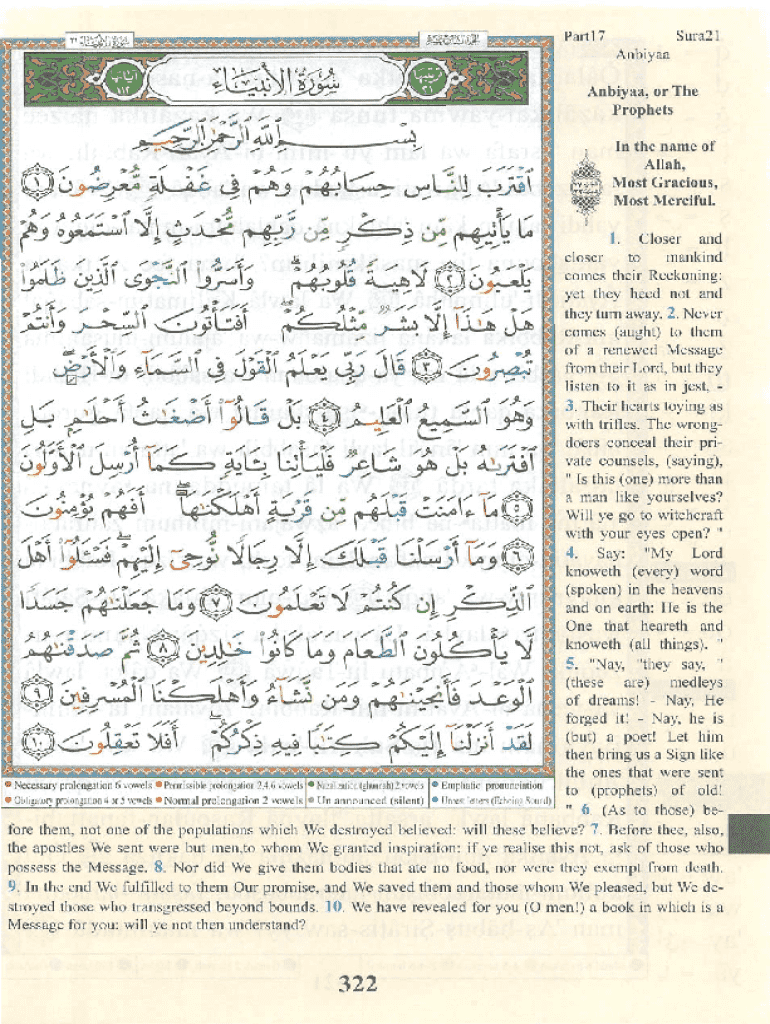 Part17 Sura21
Anbiyaa
سورة الأنبياء ٢١
ترتيبها ٢١
سُورَةُ الأَنْبِيَاءِ
آياتها ١١٢
Anbiyaa, or The
Prophets
In the name of
Allah,
Most Gracious,
Most Merciful.
بِسْمِ اللَّهِ الرَّحْمَٰنِ الرَّحِيمِ
ٱقْتَرَبَ لِلنَّاسِ حِسَابُهُمْ وَهُمْ فِى غَفْلَةٍ مُّعْرِضُونَ ١
مَا يَأْتِيهِم مِّن ذِكْرٍ مِّن رَّبِّهِم مُّحْدَثٍ إِلَّا ٱسْتَمَعُوهُ وَهُمْ
يَلْعَبُونَ ٢ لَاهِيَةً قُلُوبُهُمْ ۗ وَأَسَرُّوا۟ ٱلنَّجْوَى ٱلَّذِينَ ظَلَمُوا۟
هَلْ هَٰذَآ إِلَّا بَشَرٌ مِّثْلُكُمْ ۖ أَفَتَأْتُونَ ٱلسِّحْرَ وَأَنتُمْ
تُبْصِرُونَ ٣ قَالَ رَبِّى يَعْلَمُ ٱلْقَوْلَ فِى ٱلسَّمَآءِ وَٱلْأَرْضِ ۖ
وَهُوَ ٱلسَّمِيعُ ٱلْعَلِيمُ ٤ بَلْ قَالُوٓا۟ أَضْغَٰثُ أَحْلَٰمٍۭ بَلِ
ٱفْتَرَىٰهُ بَلْ هُوَ شَاعِرٌ فَلْيَأْتِنَا بِـَٔايَةٍ كَمَآ أُرْسِلَ ٱلْأَوَّلُونَ
٥ مَآ ءَامَنَتْ قَبْلَهُم مِّن قَرْيَةٍ أَهْلَكْنَٰهَآ ۖ أَفَهُمْ يُؤْمِنُونَ
٦ وَمَآ أَرْسَلْنَا قَبْلَكَ إِلَّا رِجَالًا نُّوحِىٓ إِلَيْهِمْ ۖ فَسْـَٔلُوٓا۟ أَهْلَ
ٱلذِّكْرِ إِن كُنتُمْ لَا تَعْلَمُونَ ٧ وَمَا جَعَلْنَٰهُمْ جَسَدًا
لَّا يَأْكُلُونَ ٱلطَّعَامَ وَمَا كَانُوا۟ خَٰلِدِينَ ٨ ثُمَّ صَدَقْنَٰهُمُ
ٱلْوَعْدَ فَأَنجَيْنَٰهُمْ وَمَن نَّشَآءُ وَأَهْلَكْنَا ٱلْمُسْرِفِينَ ٩
لَقَدْ أَنزَلْنَآ إِلَيْكُمْ كِتَٰبًا فِيهِ ذِكْرُكُمْ ۖ أَفَلَا تَعْقِلُونَ ١٠
1. Closer and
closer to mankind
comes their Reckoning:
yet they heed not and
they turn away. 2. Never
comes (aught) to them
of a renewed Message
from their Lord, but they
listen to it as in jest, -
3. Their hearts toying as
with trifles. The wrong-
doers conceal their pri-
vate counsels, (saying),
" Is this (one) more than
a man like yourselves?
Will ye go to witchcraft
with your eyes open? "
4. Say: "My Lord
knoweth (every) word
(spoken) in the heavens
and on earth: He is the
One that heareth and
knoweth (all things). "
5. "Nay, "they say, "
(these are) medleys
of dreams! - Nay, He
forged it! - Nay, he is
(but) a poet! Let him
then bring us a Sign like
the ones that were sent
to (prophets) of old!
" 6. (As to those) be-
fore them, not one of the populations which We destroyed believed: will these believe? 7. Before thee, also,
the apostles We sent were but men,to whom We granted inspiration: if ye realise this not, ask of those who
possess the Message. 8. Nor did We give them bodies that ate no food, nor were they exempt from death.
9. In the end We fulfilled to them Our promise, and We saved them and those whom We pleased, but We de-
stroyed those who transgressed beyond bounds. 10. We have revealed for you (O men!) a book in which is a
Message for you: will ye not then understand?
Necessary prolongation 6 vowels Permissible prolongation 2,4,6 vowels Nazalization (ghunnah) 2 vowels Emphatic pronunciation
Obligatory prolongation 4 or 5 vowels Normal prolongation 2 vowels Un announced (silent) Unrest letters (Echoing Sound)
322